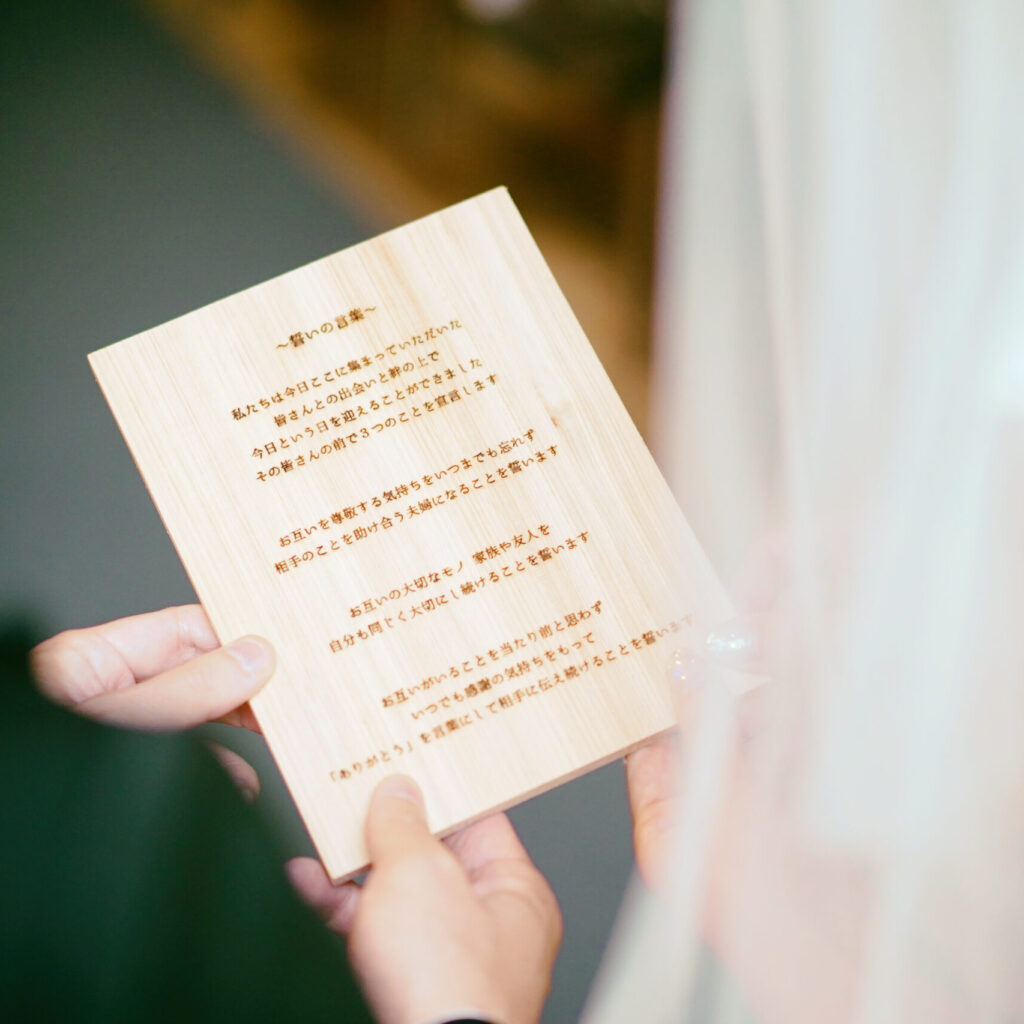 ～誓いの言葉～
私たちは今日ここに集まっていただいた
皆さんとの出会いと絆の上で
今日という日を迎えることができました
その皆さんの前で3つのことを宣言します
お互いを尊敬する気持ちをいつまでも忘れず
相手のことを助け合う夫婦になることを誓います
お互いの大切なモノ 家族や友人を
自分も同じく大切にし続けることを誓います
お互いがいることを当たり前と思わず
いつでも感謝の気持ちをもって
「ありがとう」を言葉にして相手に伝え続けることを誓います